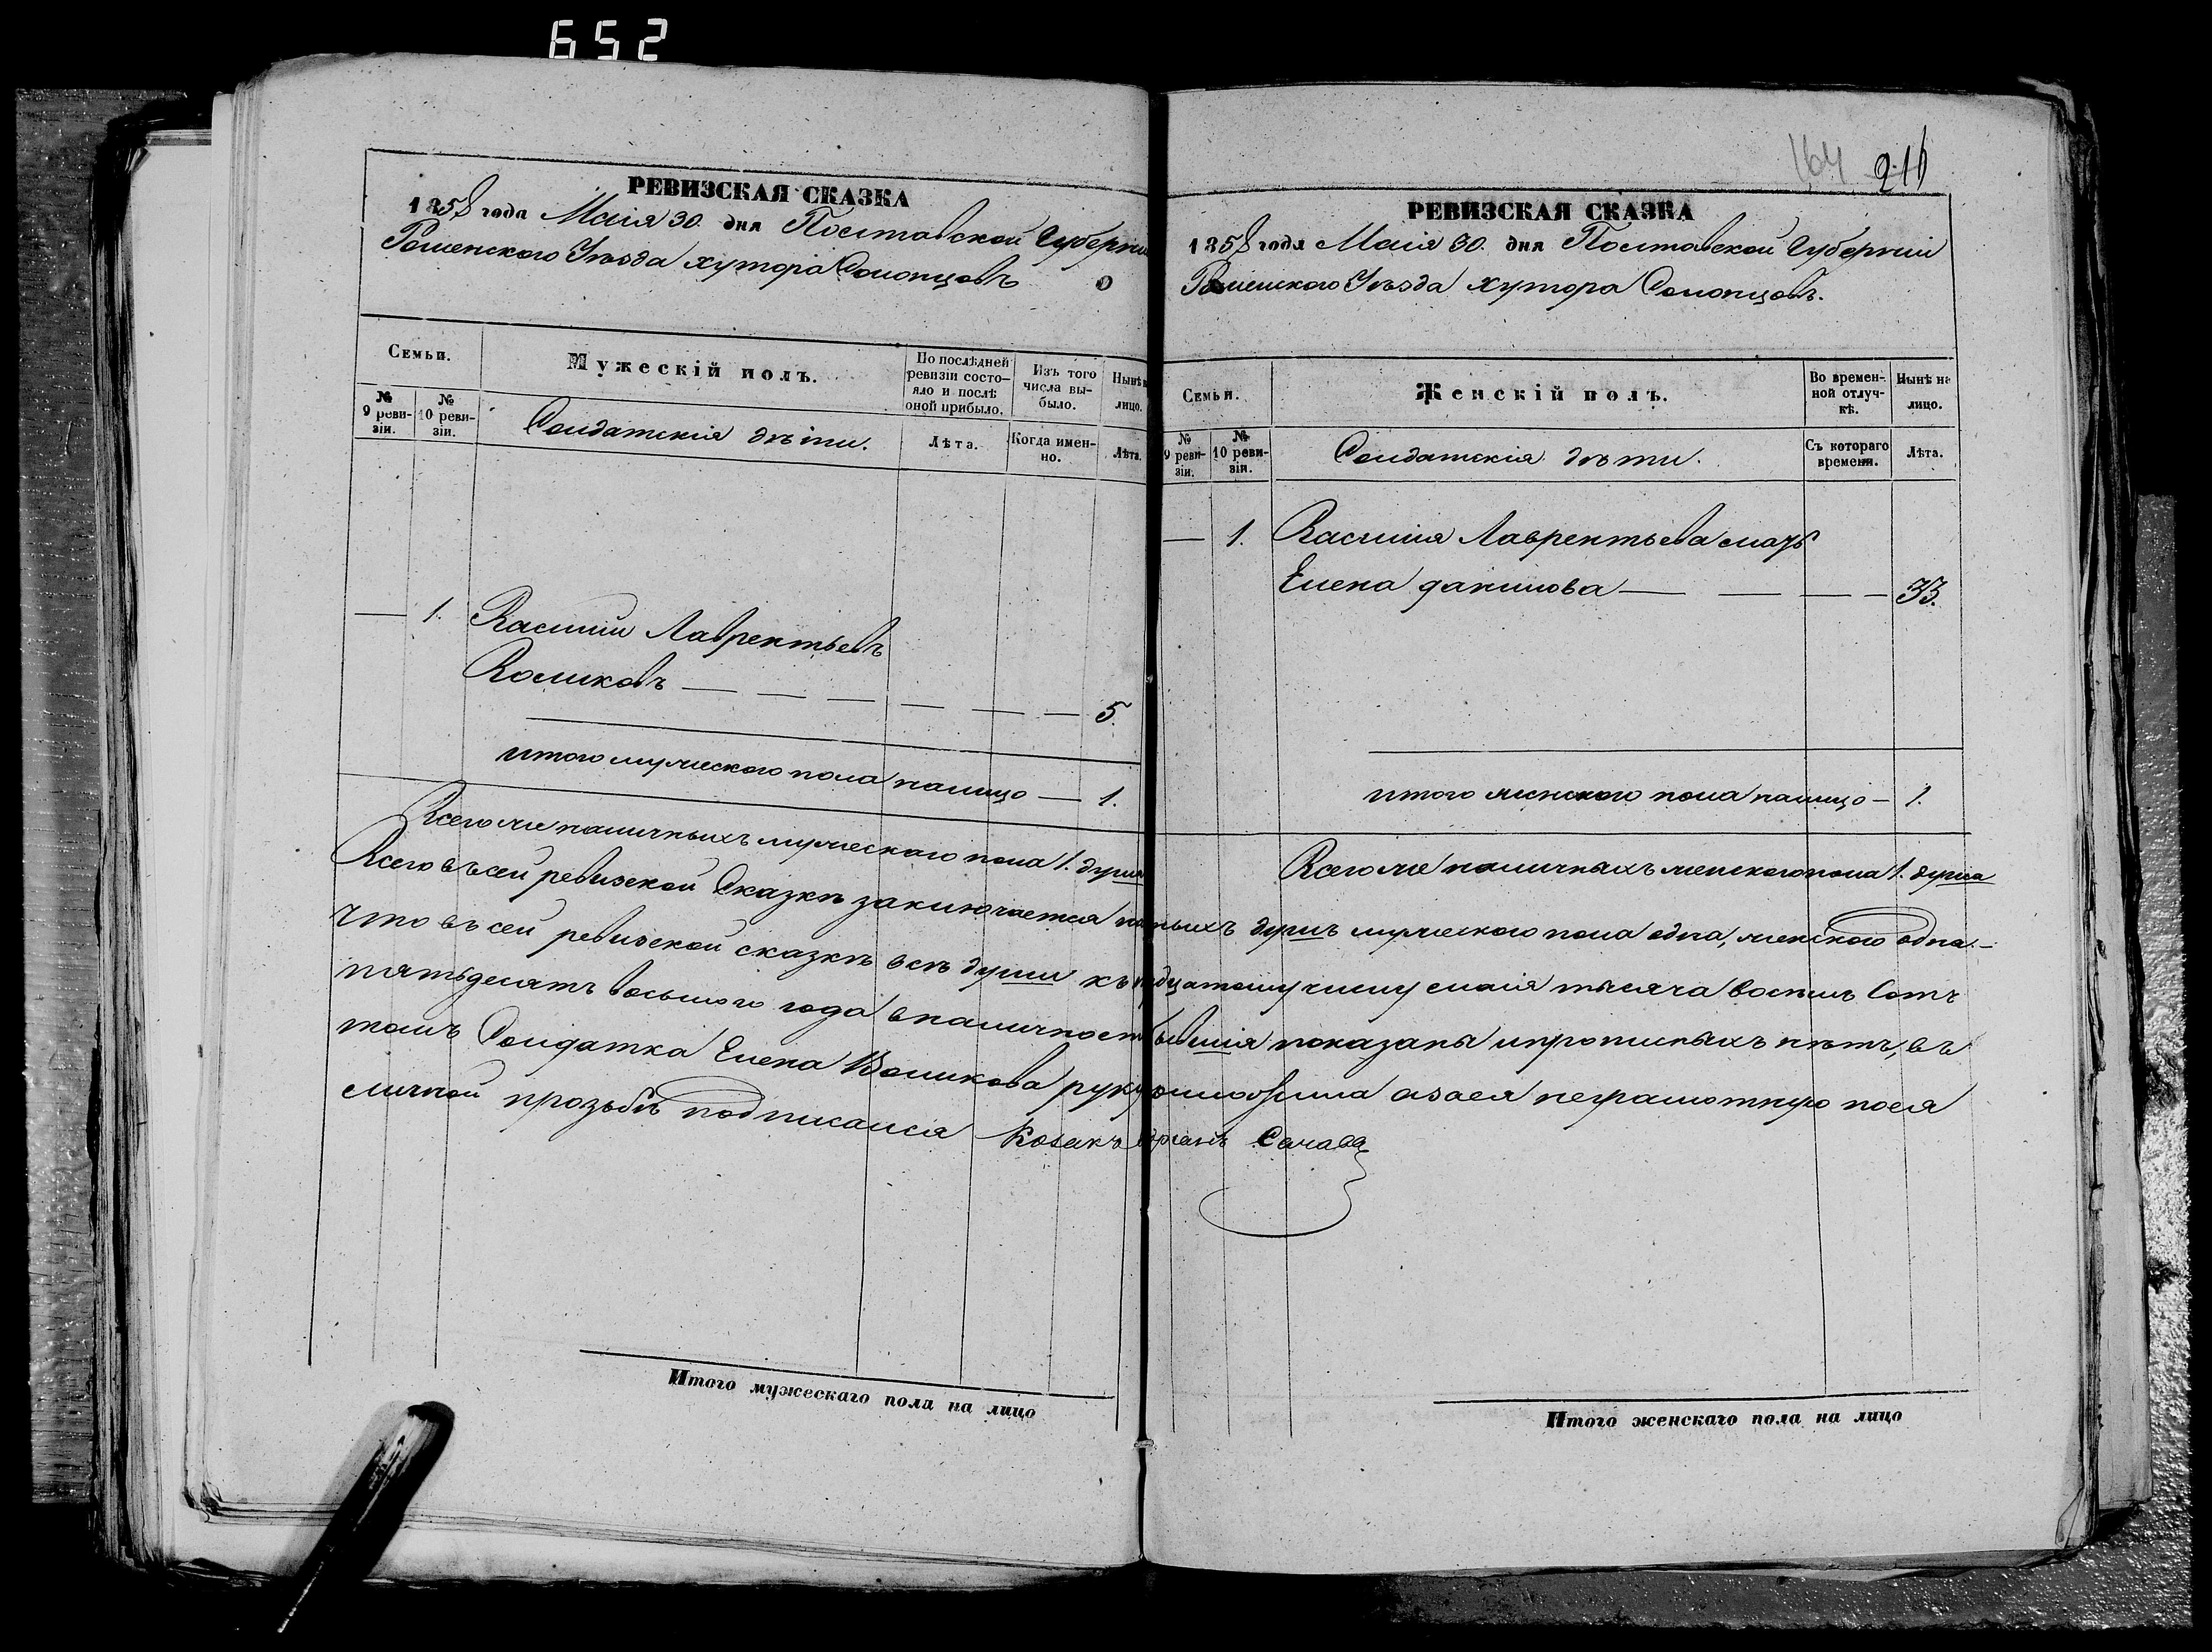 652
РЕВИЗСКАЯ СКАЗКА
1858 года Маія 30. дня Полтавской Губерніи
Роменскаго Уѣзда хутора Солонцовъ
Семьи.
№ 9 ревизіи.
№ 10 ревизіи.
Мужескій полъ.
Солдатскія дѣти.
По послѣдней ревизіи состояло и послѣ оной прибыло.
Лѣта.
Изъ того числа выбыло.
Когда именно.
Нынѣ на лицо.
Лѣта.
— 1. Василій Лаврентьевъ
Воликовъ — — — — — — 5.
итого мужескаго пола налицо — 1.
Всего же наличныхъ мужескаго пола 1. душа
164 216
РЕВИЗСКАЯ СКАЗКА
1858 года Маія 30. дня Полтавской Губерніи
Роменскаго Уѣзда хутора Солонцовъ.
Семьи.
№ 9 ревизіи.
№ 10 ревизіи.
Женскій полъ.
Солдатскія дѣти.
Во временной отлучкѣ.
Съ котораго времени.
Нынѣ на лицо.
Лѣта.
— 1. Василія Лаврентьева мать
Елена Данилова — — — — 33.
итого женскаго пола налицо — 1.
Всего же наличныхъ женскаго пола 1. душа
Всего въ сей ревизской Сказкѣ заключается душъ мужескаго пола одна, женскаго одна. —
Что въ сей ревизской сказкѣ всѣ души къ числу маія тысяча восемь Сотъ
пятьдесятъ восьмого года показаны и прописныхъ нѣтъ, въ
томъ Солдатка Елена Воликова руку приложила а за ея неграмотную по ея
личной прозьбѣ подписался Козакъ Сачава
Итого мужескаго пола на лицо
Итого женскаго пола на лицо